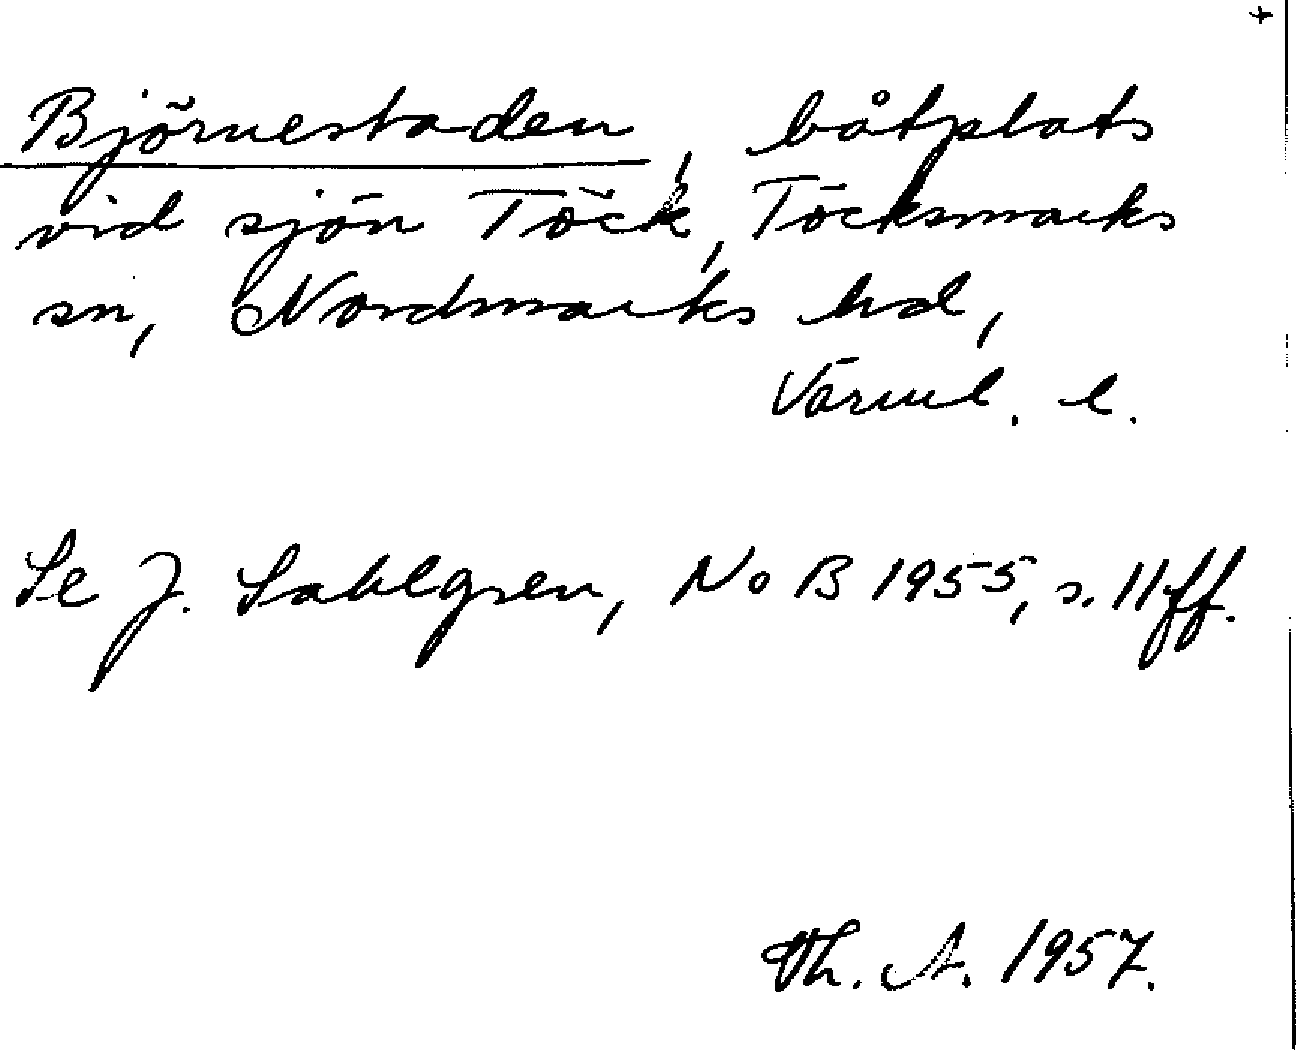 +
Björnestaden, båtplats
vid sjön Töck, Töcksmarks
sn, Nordmarks hd,
Värml. l.
Se J. Sahlgren, NoB 1955, s. 11 ff.
Th. A. 1957.